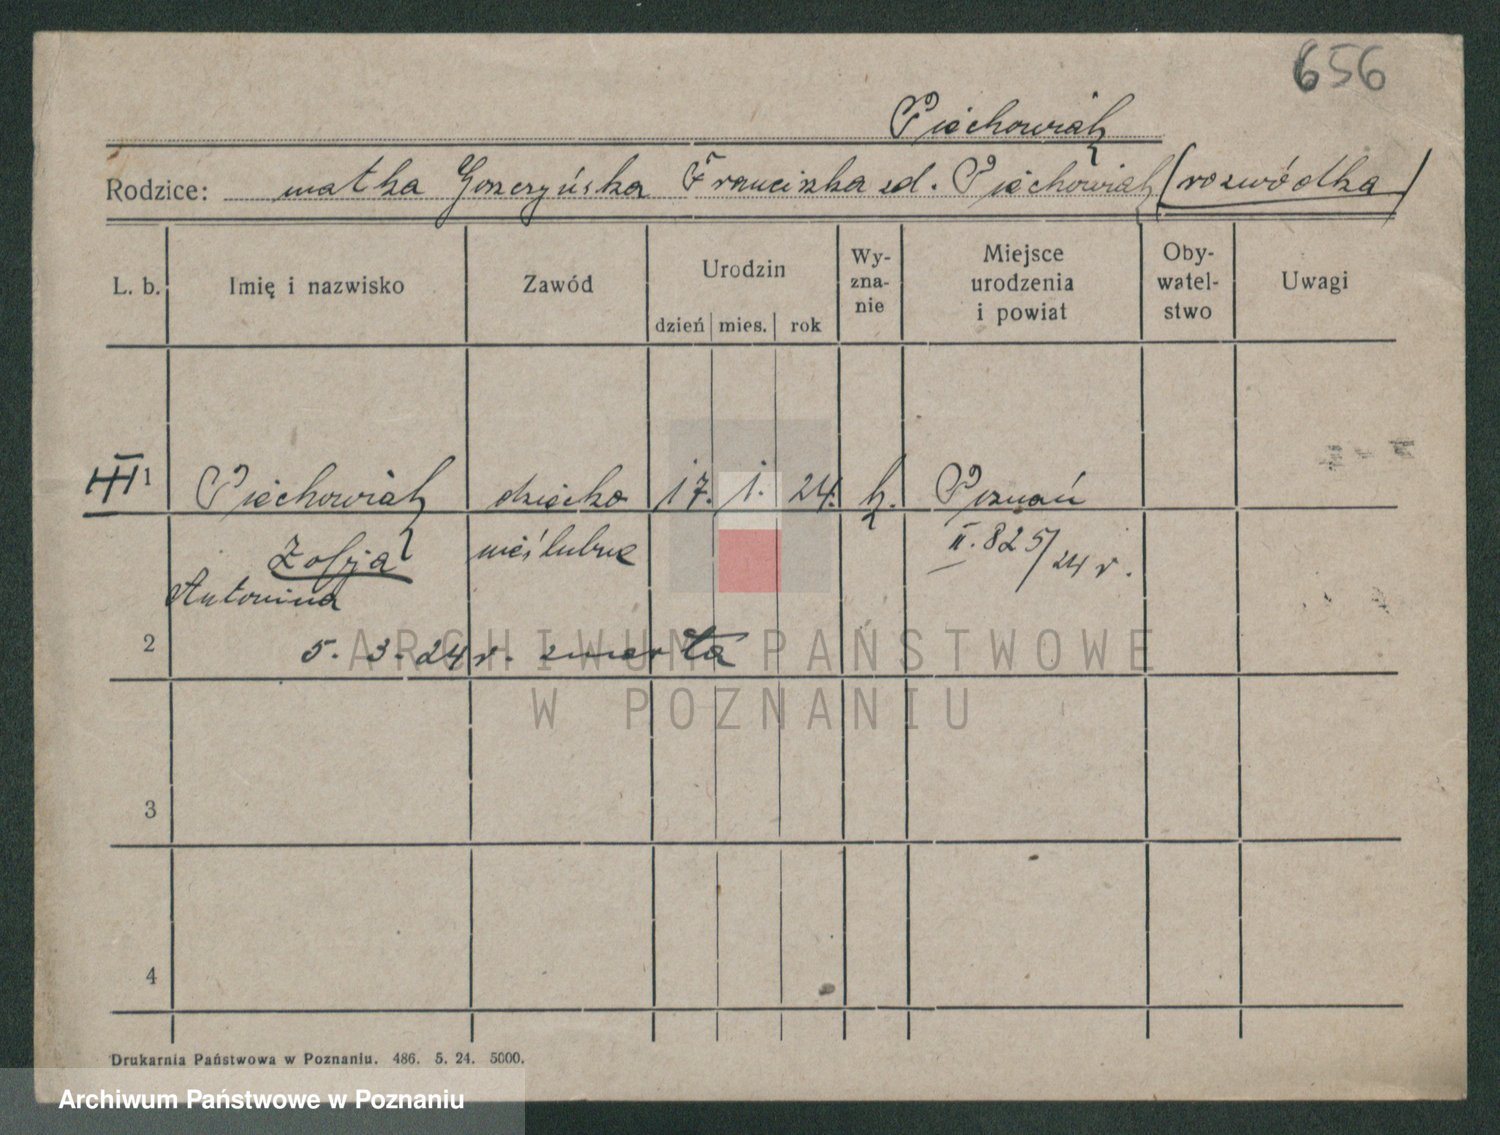 656
Piechowiak
Rodzice: matka Goszczyńska Franciszka zd. Piechowiak (rozwódka)
L. b. Imię i nazwisko Zawód Urodzin dzień mies. rok Wy-zna-nie Miejsce urodzenia i powiat Oby-watel-stwo Uwagi
1 Piechowiak dziecko 17. 1. 24. k. Poznań
Zofja nieślubne II. 825/24 r.
Antonina
2 5. 3. 24 r. zmarła
3
4
Drukarnia Państwowa w Poznaniu. 486. 5. 24. 5000.
ARCHIWUM PAŃSTWOWE
W POZNANIU
Archiwum Państwowe w Poznaniu